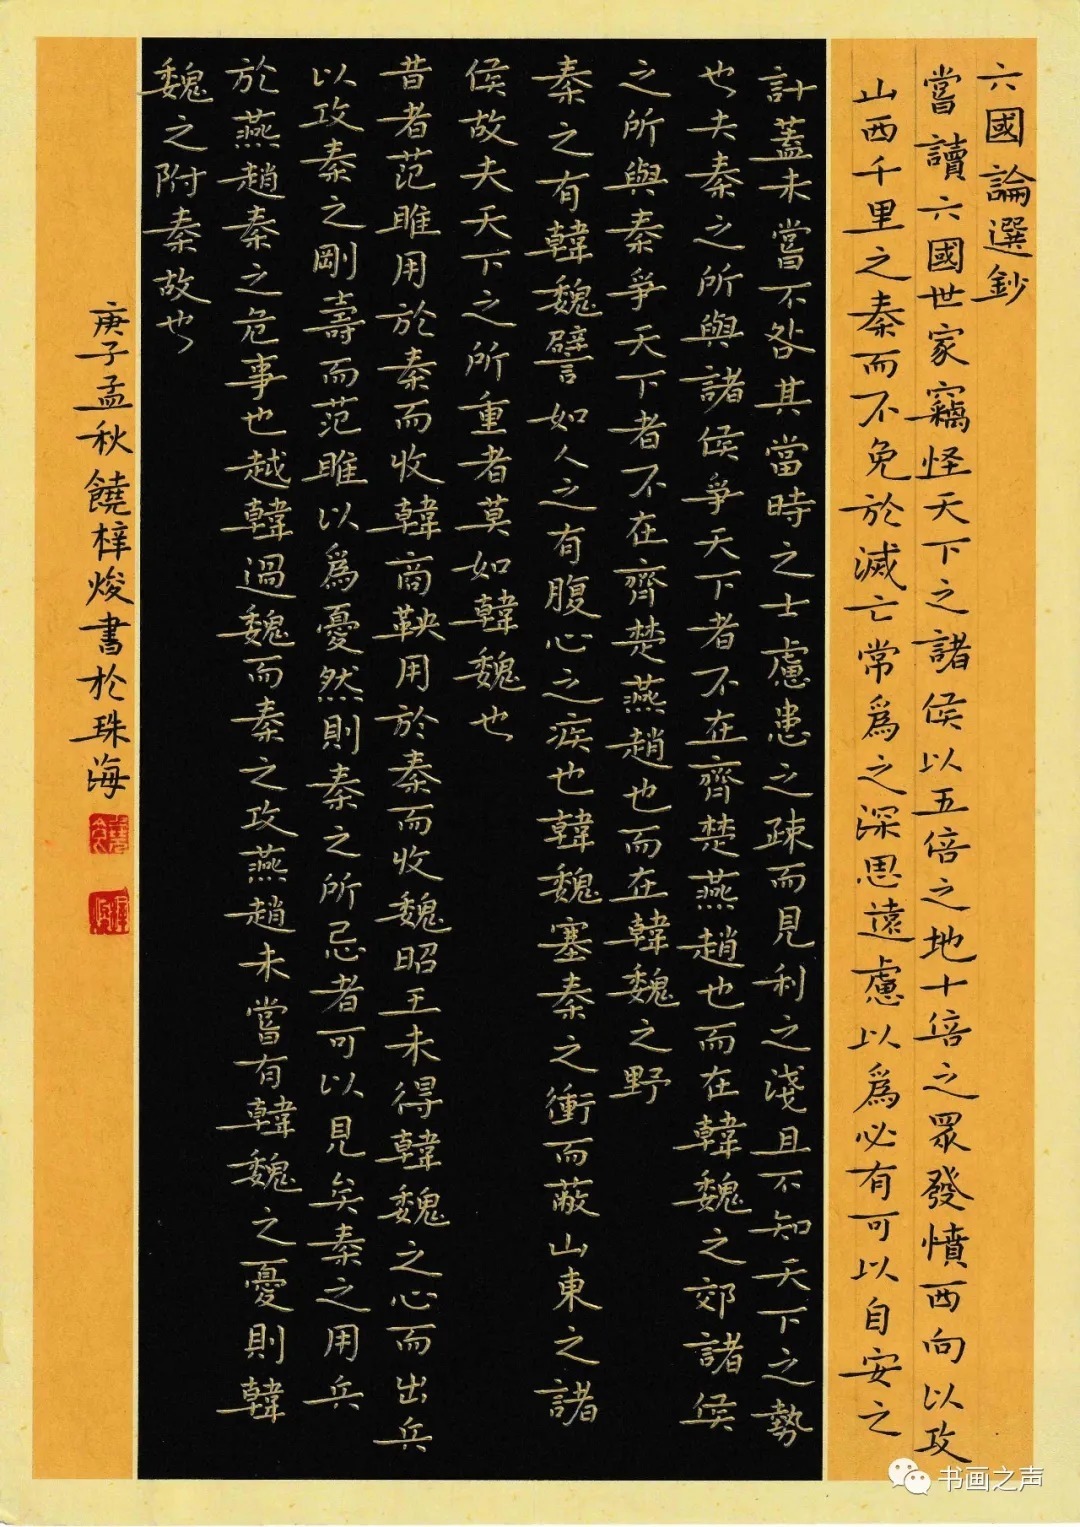 六國論選鈔
嘗讀六國世家竊怪天下之諸侯以五倍之地十倍之眾發憤西向以攻
山西千里之秦而不免於滅亡常爲之深思遠慮以爲必有可以自安之
計蓋未嘗不咎其當時之士慮患之疎而見利之淺且不知天下之勢
也夫秦之所與諸侯爭天下者不在齊楚燕趙也而在韓魏之郊諸侯
之所與秦爭天下者不在齊楚燕趙也而在韓魏之野
秦之有韓魏譬如人之有腹心之疾也韓魏塞秦之衝而蔽山東之諸
侯故夫天下之所重者莫如韓魏也
昔者范雎用於秦而收韓商鞅用於秦而收魏昭王未得韓魏之心而出兵
以攻秦之剛壽而范雎以爲憂然則秦之所忌者可以見矣秦之用兵
於燕趙秦之危事也越韓過魏而秦之攻燕趙未嘗有韓魏之憂則韓
魏之附秦故也
庚子孟秋饒梓焌書於珠海
书画之声